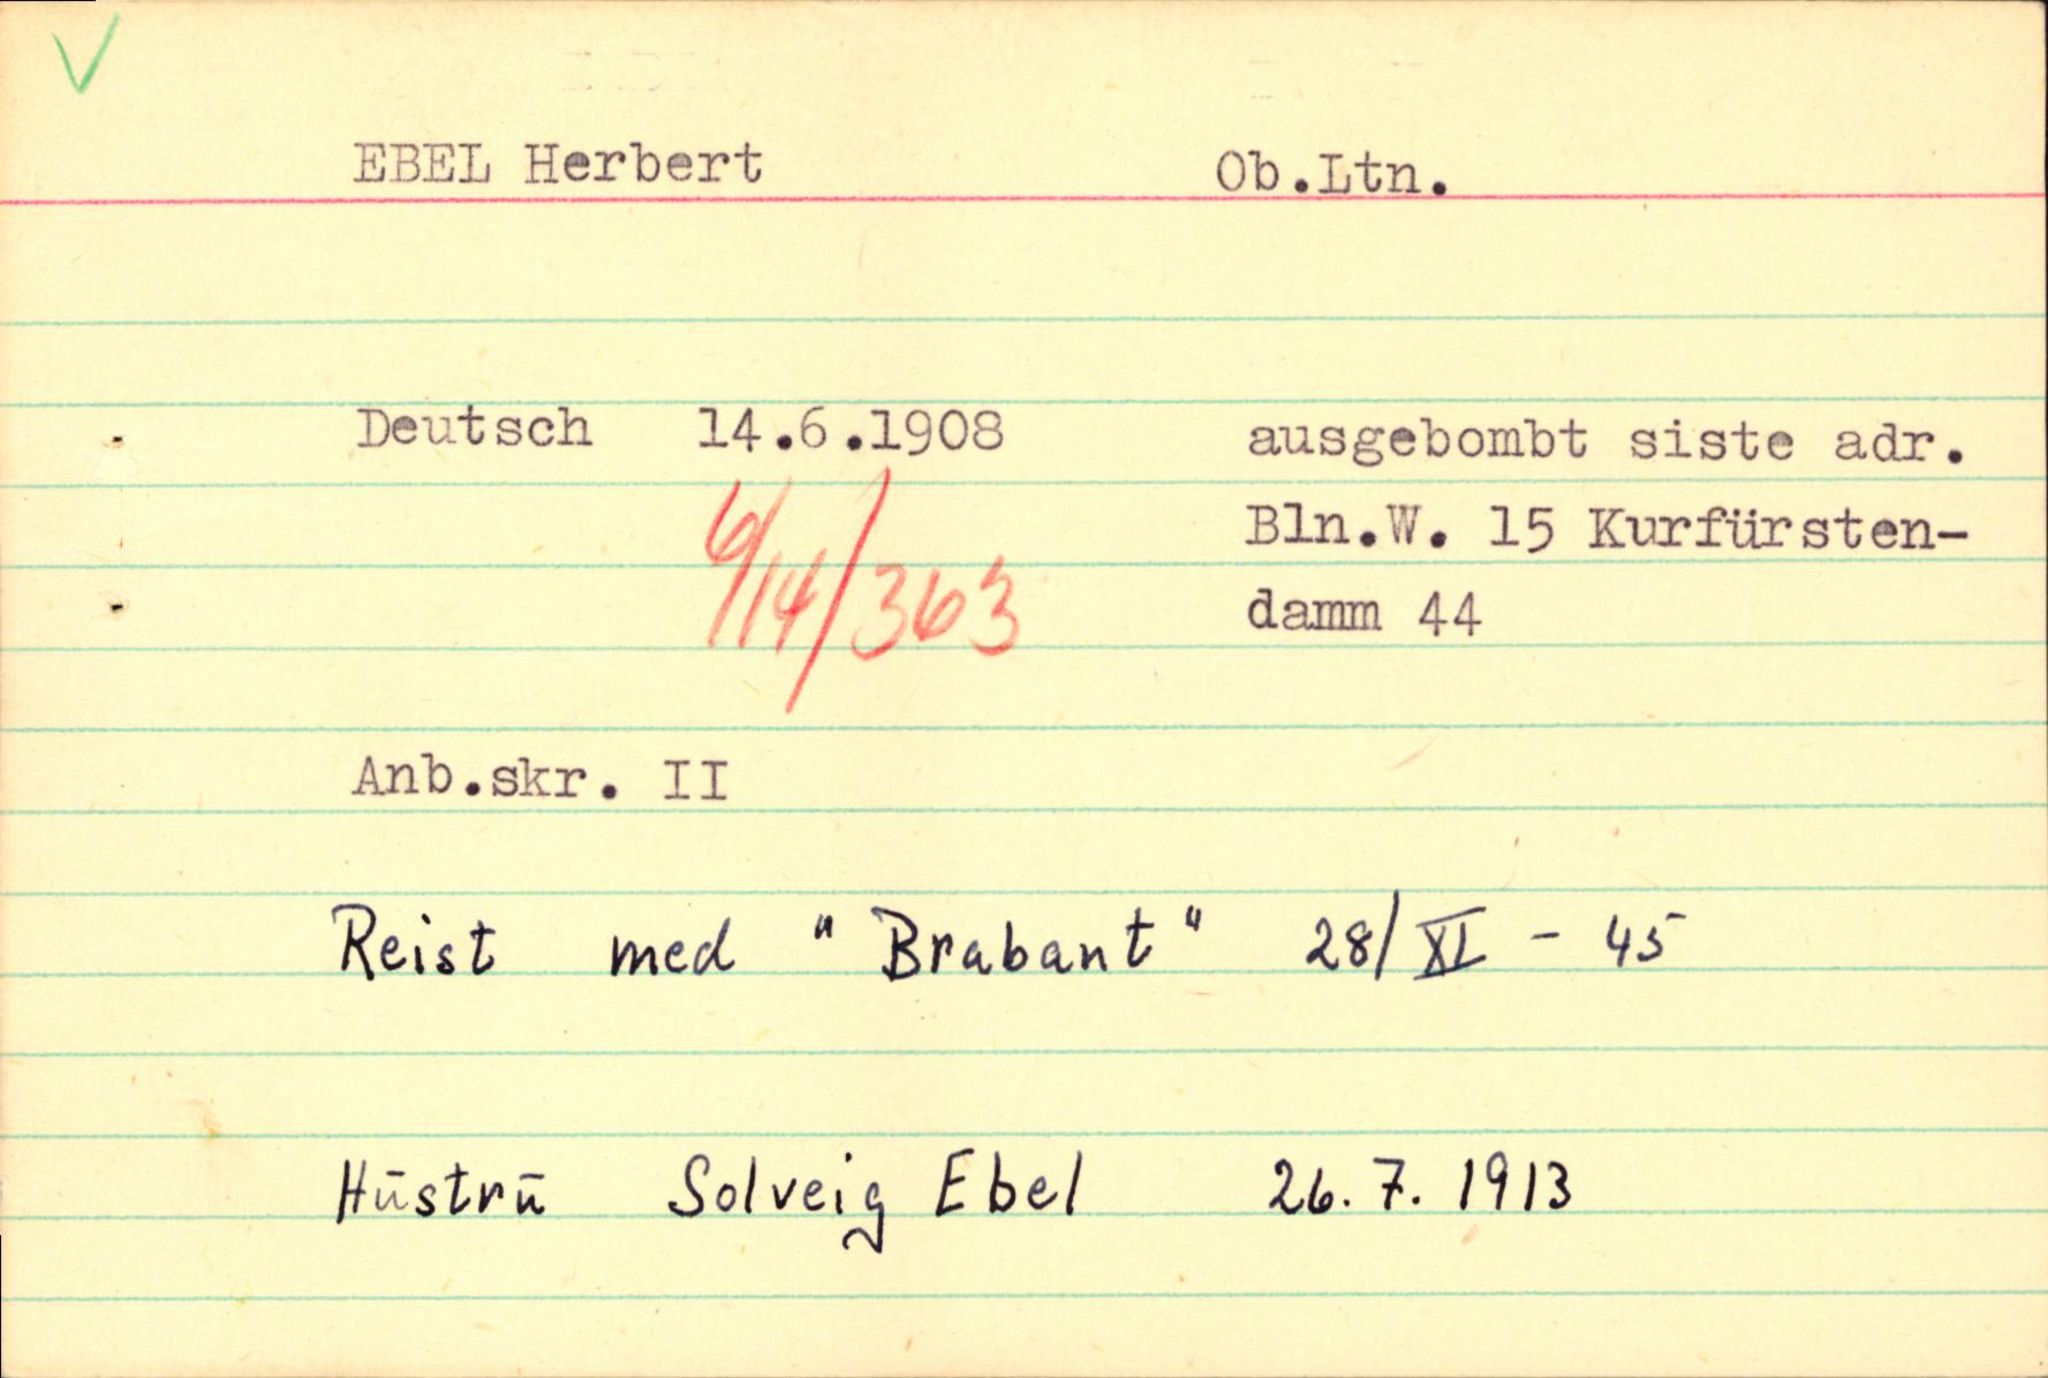 EBEL Herbert Ob.Ltn.
Deutsch 14.6.1908 ausgebombt siste adr.
Bln.W. 15 Kurfürsten-
6/14/363 damm 44
Anb.skr. II
Reist med "Brabant" 28/XI - 45
Hūstrū Solveig Ebel 26.7.1913